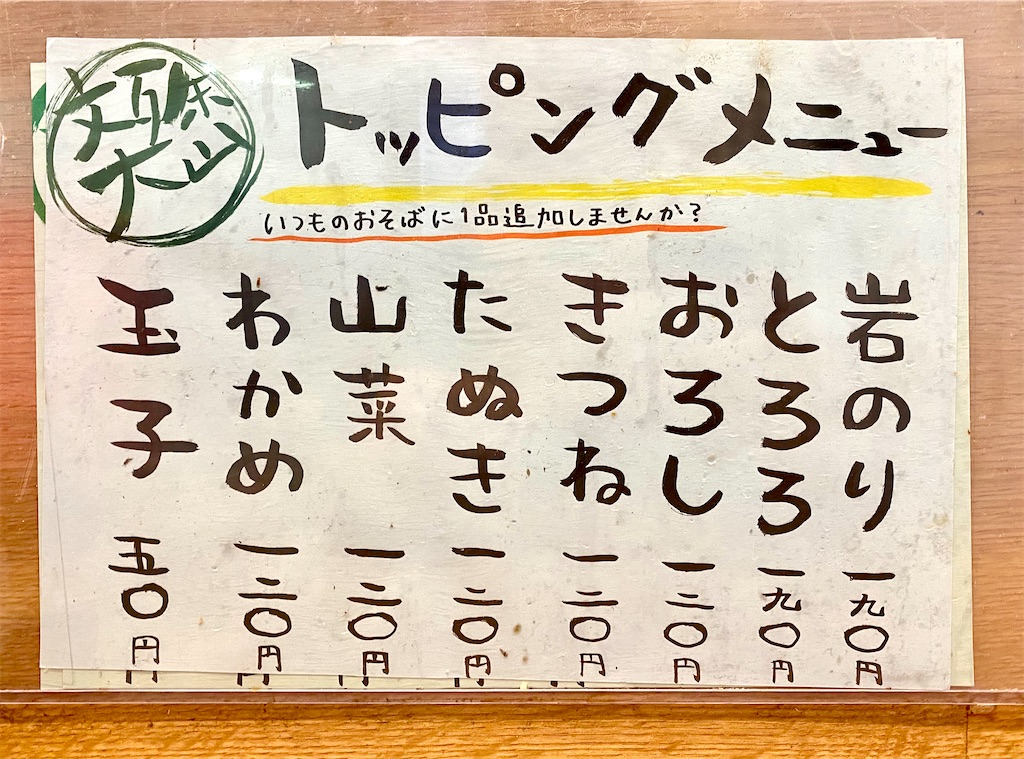 トッピングメニュー
いつものおそばに1品追加しませんか?
岩のり 一九〇円
とろろ 一九〇円
おろし 一二〇円
きつね 一二〇円
たぬき 一二〇円
山菜 一二〇円
わかめ 一二〇円
玉子 五〇円